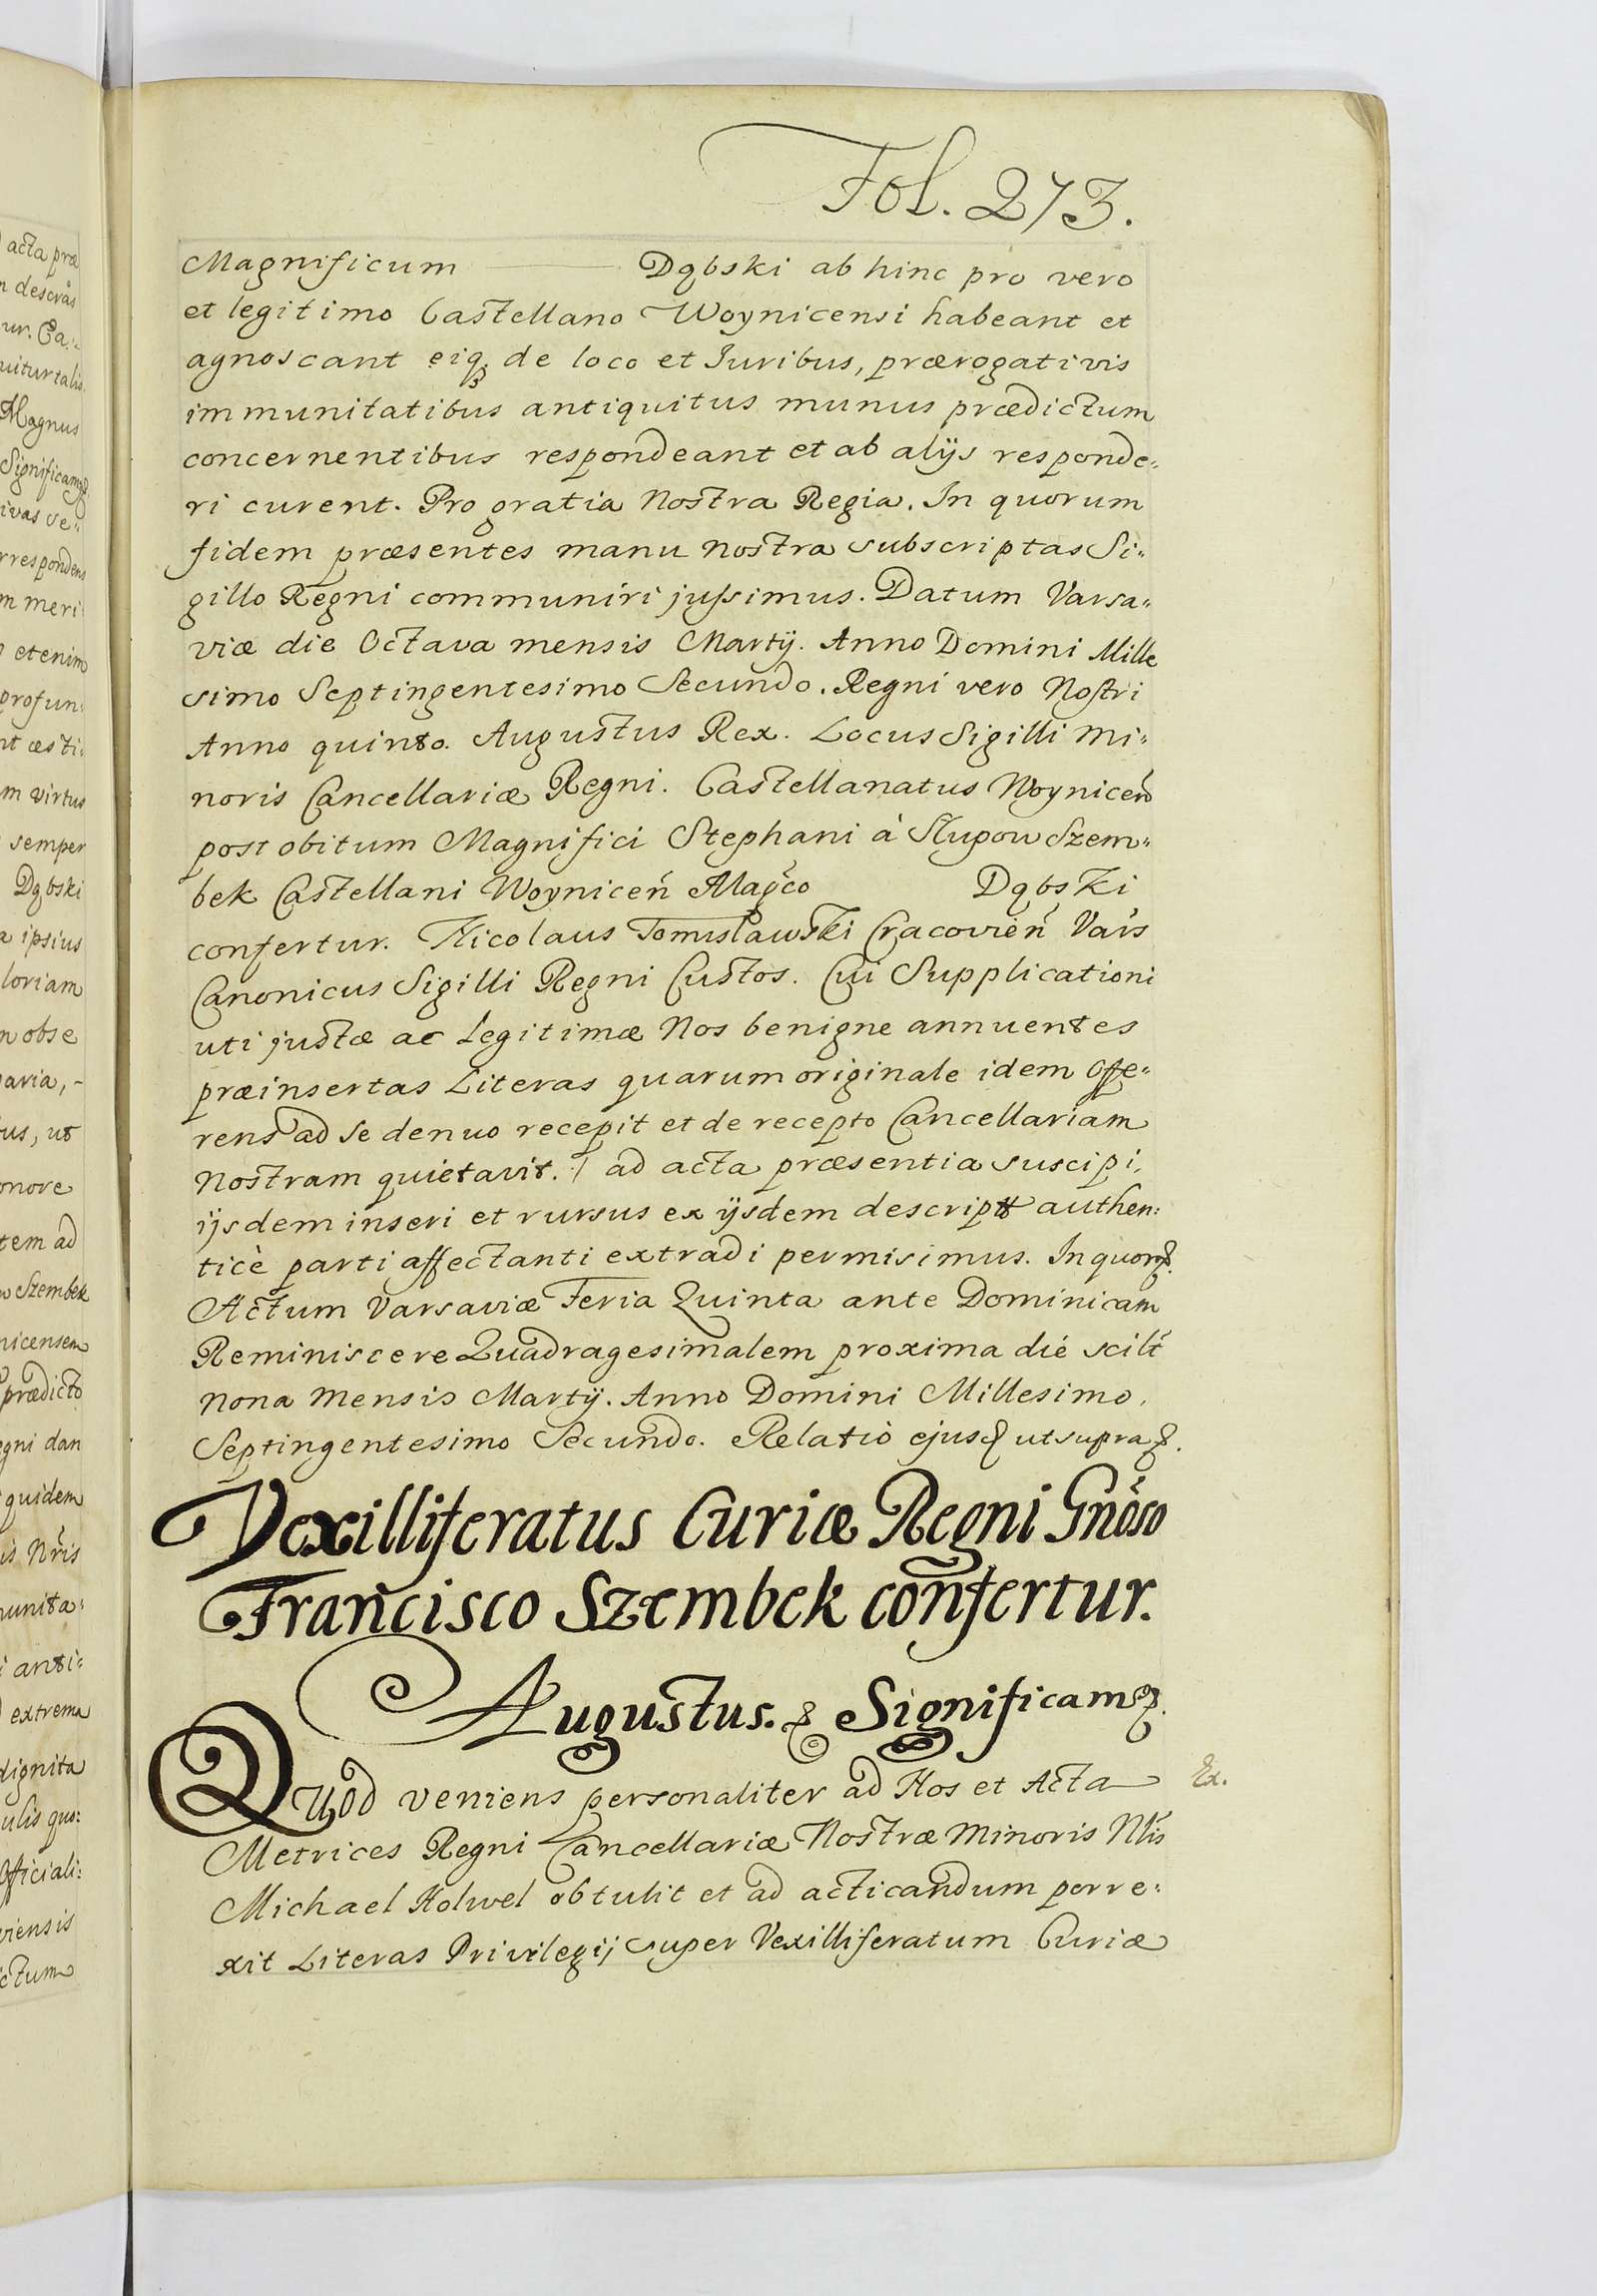 Fol. 273.
Magnificum ——— Dąbski ab hinc pro vero
et legitimo Castellano Woynicensi habeant et
agnoscant eiq; de loco et Iuribus, prærogativis
immunitatibus antiquitus munus prædictum
concernentibus respondeant et ab alijs responde„
ri curent. Pro gratia Nostra Regia. In quorum
fidem præsentes manu nostra subscriptas Si„
gillo Regni communiri jussimus. Datum Varsa„
viæ die Octava mensis Martij. Anno Domini Mille
simo Septingentesimo Secundo. Regni vero Nostri
Anno quinto. Augustus Rex. Locus Sigilli Mi„
noris Cancellariæ Regni. Castellanatus Woynicen̄
post obitum Magnifici Stephani à Słupow Szem„
bek Castellani Woynicen̄ Magc̄o Dąbski
confertur. Nicolaus Tomisławski Cracovien̄ Vars̄
Canonicus Sigilli Regni Custos. Cui Supplicationi
uti justæ ac Legitimæ Nos benigne annuentes
præinsertas Literas quarum originale idem Offe„
rens ad se denuo recepit et de recepto Cancellariam
Nostram quietavit. / ad acta præsentia suscipi,
ijsdem inseri et rursus ex ijsdem descript authen:
ticè parti affectanti extradi permisimus. In quor&.
Actum Varsaviæ Feria Quinta ante Dominicam
Reminiscere Quadragesimalem proxima die scilt̄
nona Mensis Martij. Anno Domini Millesimo,
Septingentesimo Secundo. Relatio ejusd ut supra &.
Vexilliferatus Curiæ Regni Gn̄oso
Francisco Szembek confertur.
Augustus. & Significam &.
Quod veniens personaliter ad Nos et Acta Ex.
Metrices Regni Cancellariæ Nostræ Minoris Nl̄is
Michael Holwel obtulit et ad acticandum porre„
xit Literas Privilegij super Vexilliferatum Curiæ